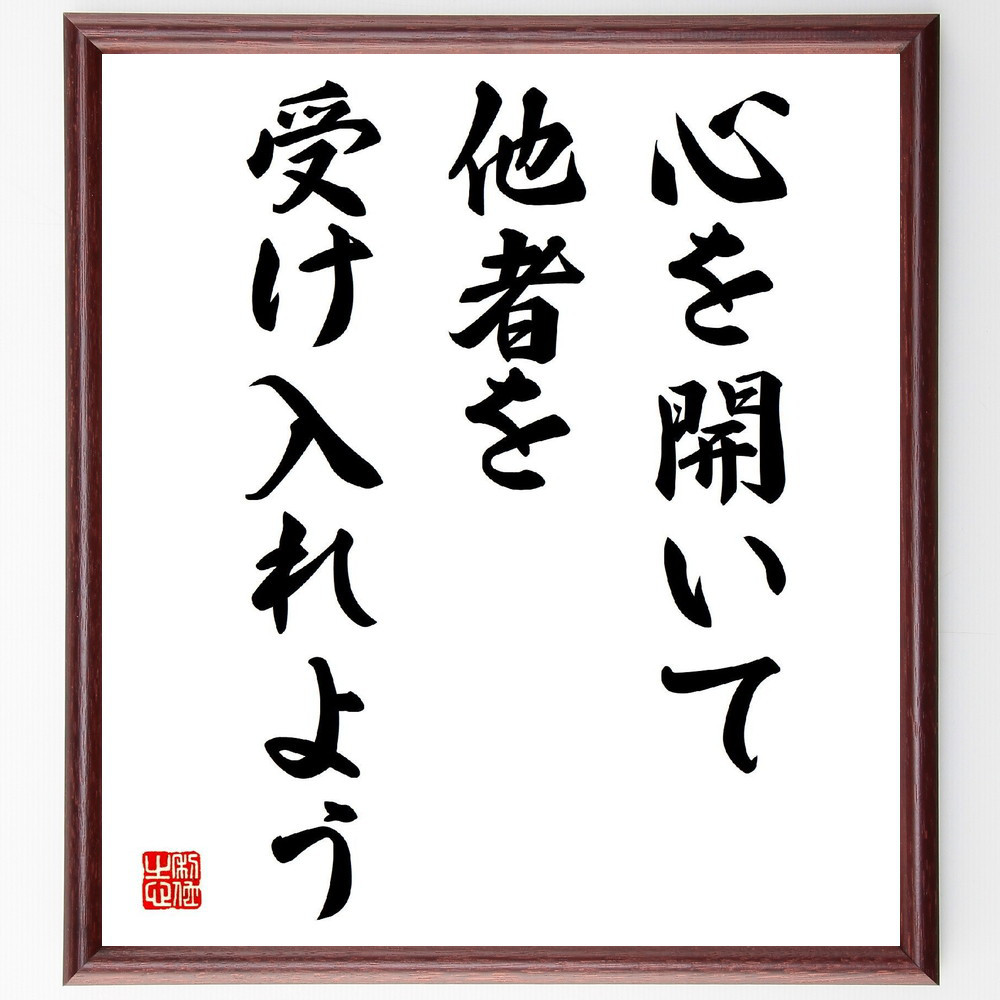 心を開いて
他者を
受け入れよう